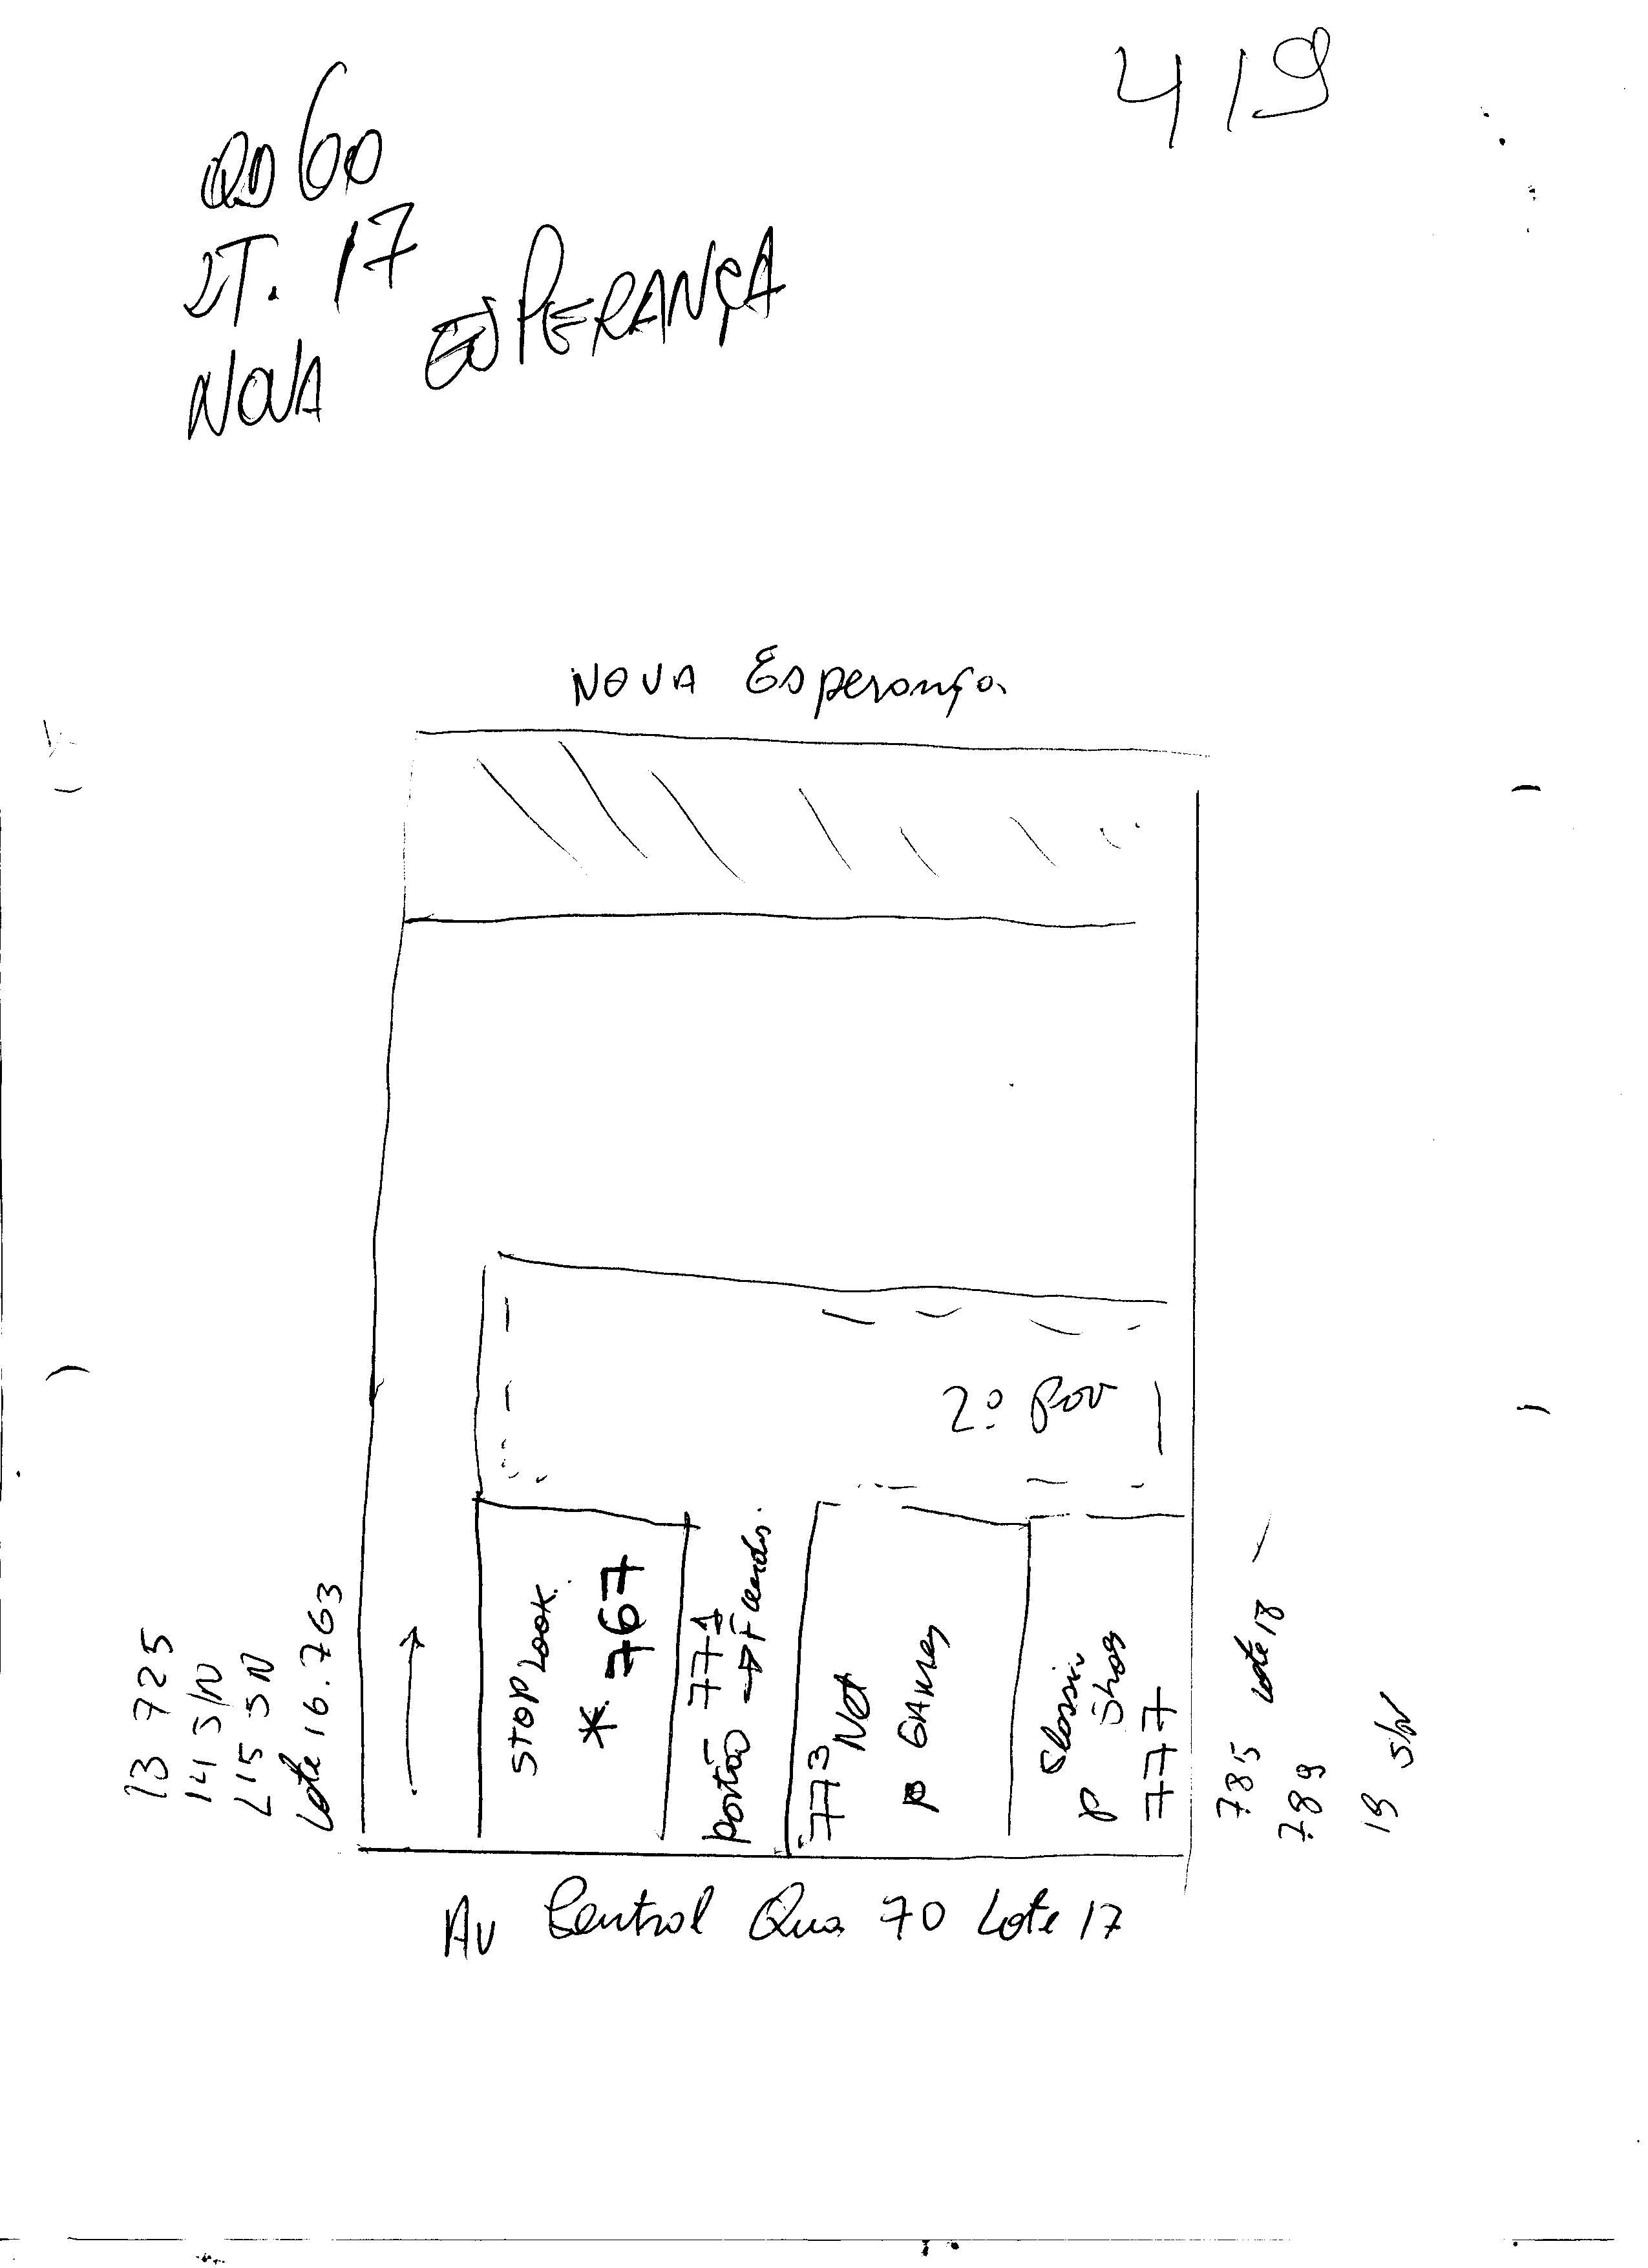 419
QD 60
LT. 17
NOVA ESPERANÇA
NOVA Esperança
2º Pav
13 725
14 S/N
L15 SN
Lote 16. 763
STOP LOOK.
* 767
portão 771
773 Net
GAMES
P Shoes
777
785 Lote 18
789
19 S/N
Av Central Qua 70 Lote 17